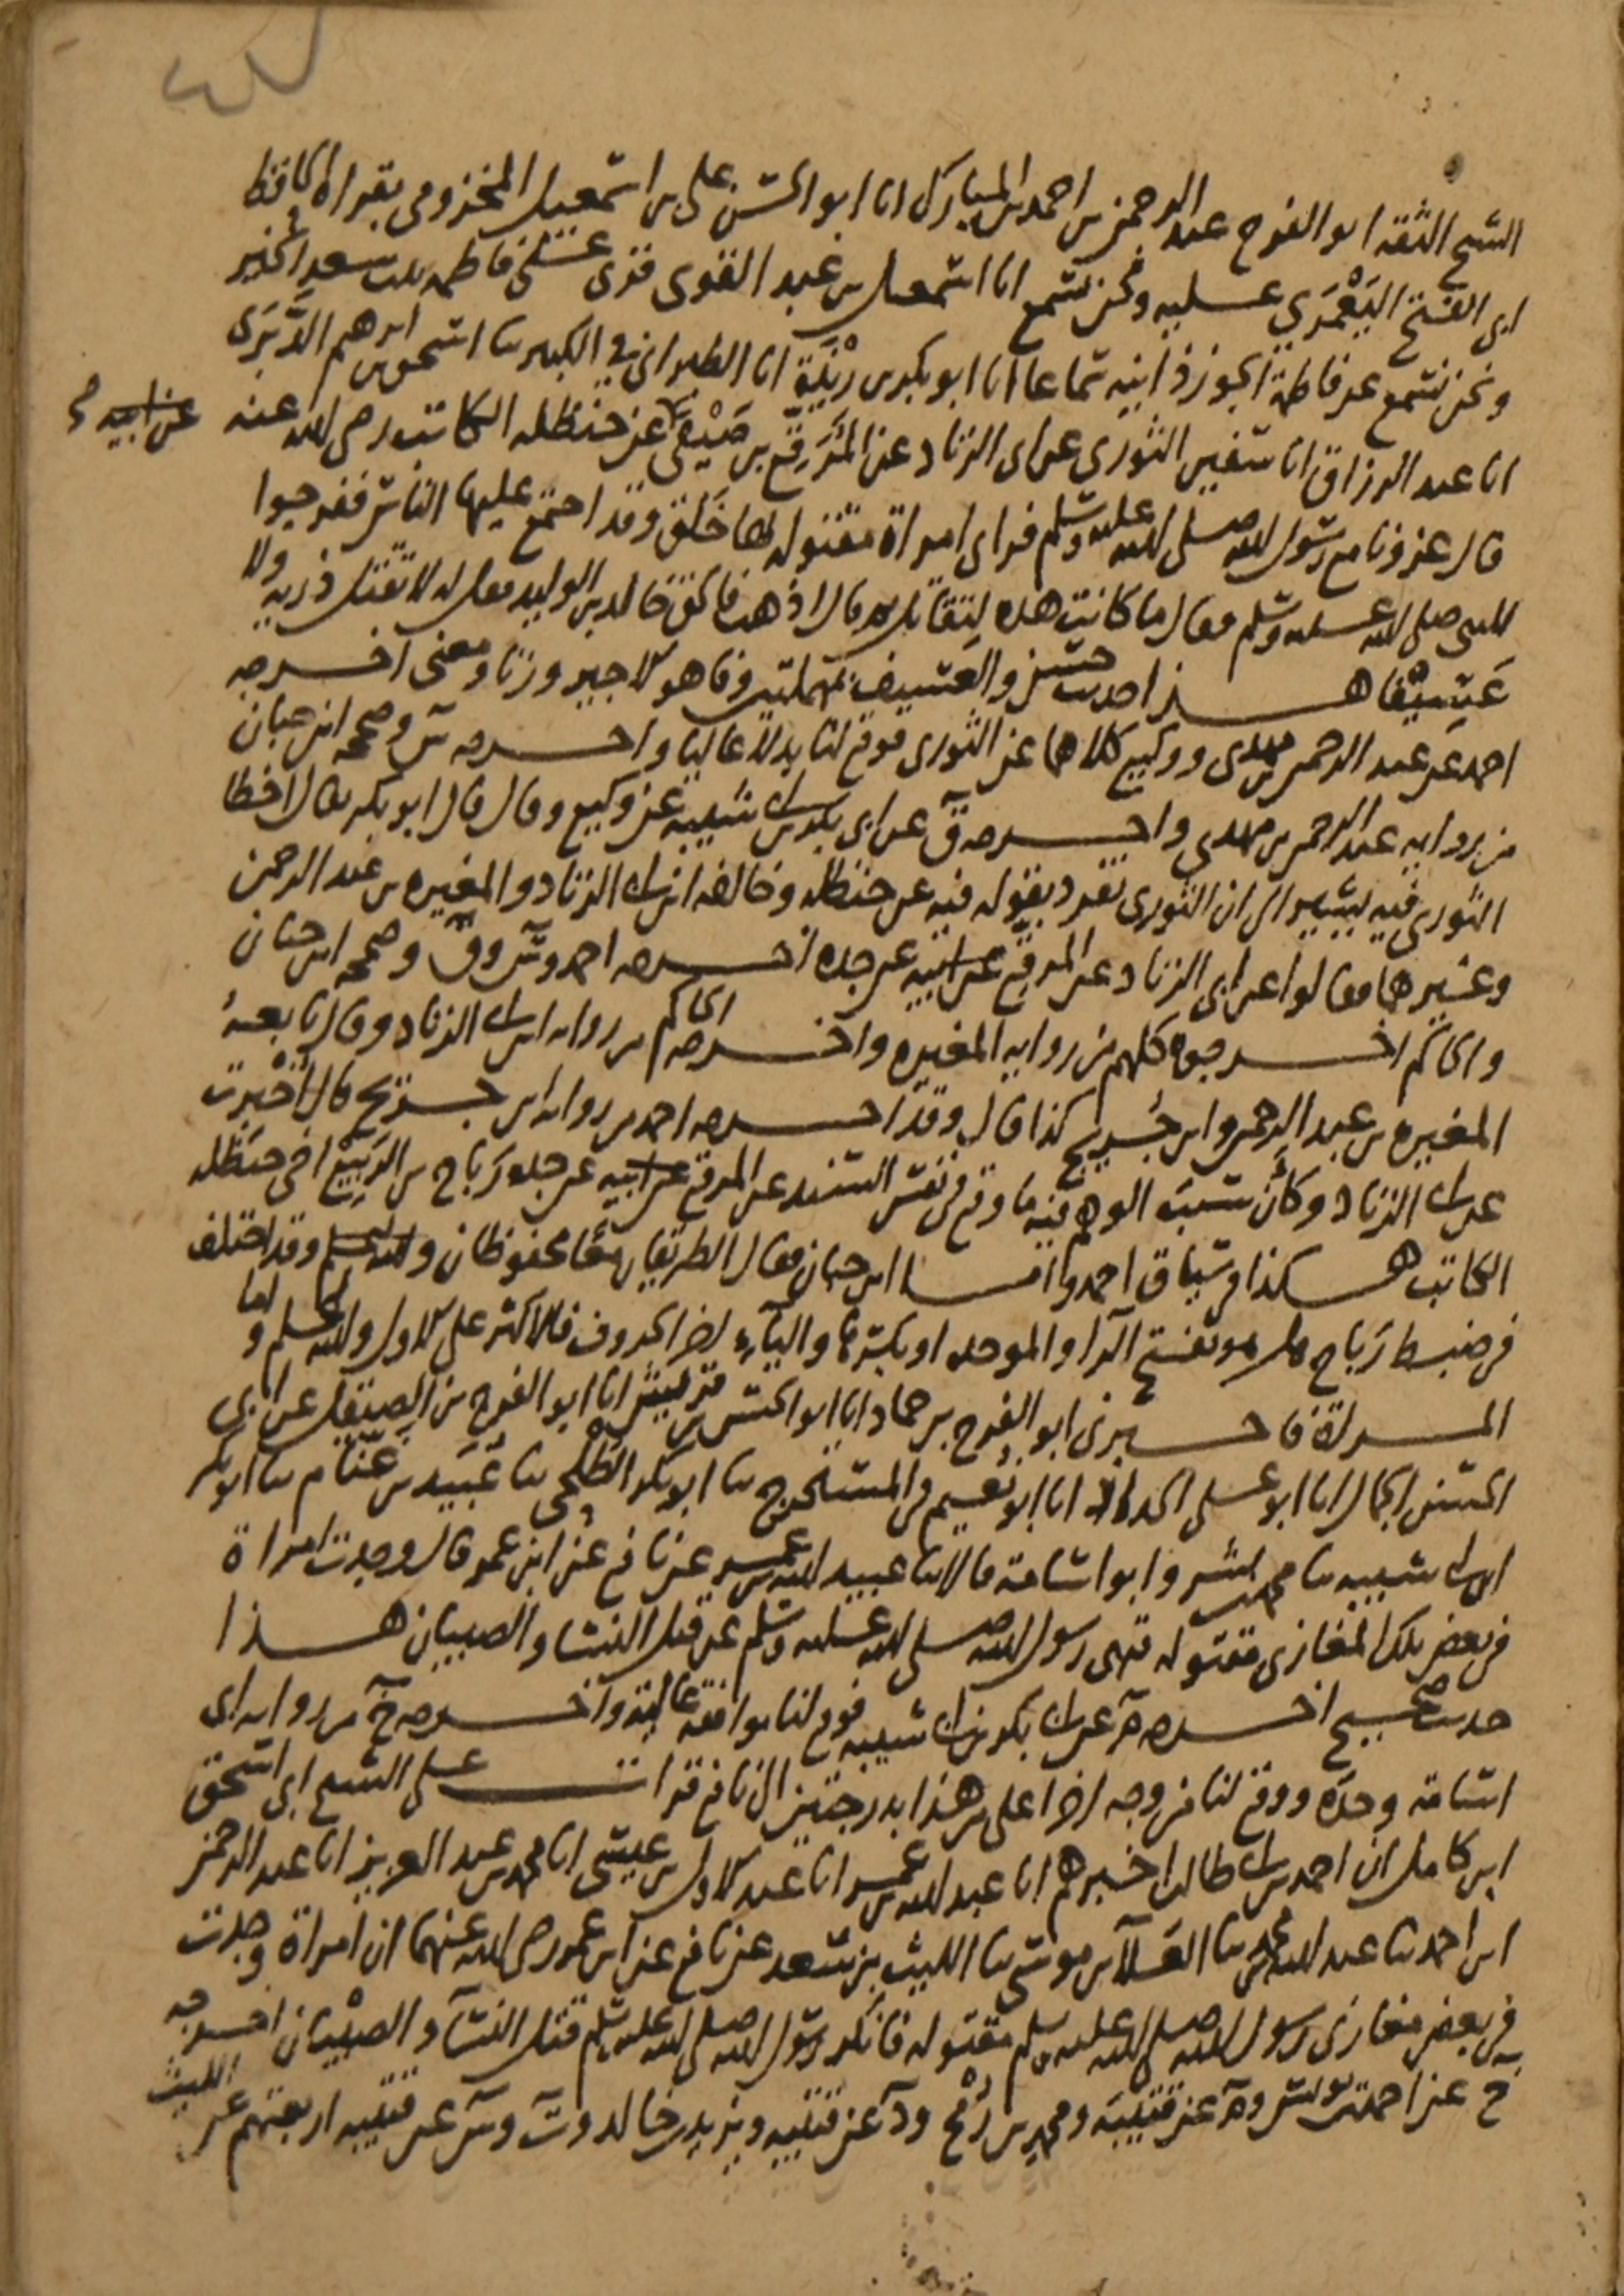 الشيخ الثقه ابو الفرج عبد الرحمن بن احمد بن المبارك انا ابو الحسن على بن اسمعيل المخزومى بقراة الحافظ
ابى الفتح اليَعْمَري عليه ونحن نسمع انا اسمعيل بن عبد القوى قرى على فاطمه بنت سعد الخير
ونحن نسمع عن فاطمة الجوزذانيه سماعا انا ابو بكر بن رِيْذَة انا الطبرانى في الكبير ثنا اسحق بن ابرهيم الدَّبَرى
انا عبد الرزاق انا سفين الثورى عن ابى الزناد عن المُرَقِّع بن صَيْفى عن حنظله الكاتب رضى الله عنه
قال غزونا مع رسول الله صلى الله عليه وسلم فراى امراة مقتوله لها خَلْق وقد اجتمع عليها الناس ففرجوا
للنبى صلى الله عليه وسلم فقال ما كانت هذه لتقاتل ثم قال اذهب فالحق خالد بن الوليد فقل له لا تقتل ذريه ولا
عَسِيْفًا هذا حديث حسن والعسيف بمهملتين وفا هو كالاجير وزنا ومعنى اخرجه
احمد عن عبد الرحمن بن مهدى ووكيع كلاهما عن الثورى فوقع لنا بدلا عاليا واخرجه س وصححه ابن حبان
من روايه عبد الرحمن بن مهدى واخرجه ق عن ابى بكر بن ابى شيبه عن وكيع وقال قال ابو بكر يقال اخطا
الثورى فيه يشير الى ان الثورى تفرد بقوله فيه عن حنظله وخالفه ابن ابى الزناد والمغيره بن عبد الرحمن
وغيرهما فقالوا عن ابى الزناد عن المرقع عن ابيه عن جده اخرجه احمد وس وق وصححه ابن حبان
والحاكم اخرجوه كلهم من روايه المغيره واخرجه الحاكم من روايه ابن ابى الزناد وقال تابعهُ
المغيره بن عبد الرحمن وابن جُريج كذا قال وقد اخرجه احمد من روايه ابن جريج قال اُخْبِرت
عن ابى الزناد وكأنّ سبب الوهم فيه ما وقع فى نفس السند عن المرقع عن ابيه عن جده رَبَاح بن الرَبِيْع اخى حنظله
الكاتب هكذا فى سياق احمد واما ابن حبان فقال الطريقان معًا محفوظان والله اعلم وقد اختلف
فى ضبط رَبَاح هل هو بفتح الرا والموحده او بكسرها والياء اخر الحروف فالاكثر على الاول والله اعلم واما
المراة فاخبرنى ابو الفرج بن حماد انا ابو الحسن بن قريش انا ابو الفرج بن الصيقل عن ابى
الحسن الجمال انا ابو على الحداد انا ابو نُعيم فى المستخرج ثنا ابو بكر الطَّلْحى ثنا عُبَيد بن غنّام ثنا ابو بكر
ابن ابى شيبه ثنا محمد بن بشر وابو اسامة قالا ثنا عبيد الله بن عمر عن نافع عن ابن عمر قال وجدت امراة
فى بعض تلك المغازى مقتوله فنهى رسول الله صلى الله عليه وسلم عن قتل النسا والصبيان هذا
حديث صحيح اخرجه م عن ابى بكر بن ابى شيبه فوقع لنا موافقة عالية واخرجه خ من روايه ابى
اسامة وحدَه ووقع لنا من وجه اخر اعلى من هذا بدرجتين الى نافع قرات على الشيخ ابى اسحق
ابن كامل ان احمد بن ابى طالب اخبرهم انا عبد الله بن عمر انا عبد الاول بن عيسى انا محمد بن عبد العزيز انا عبد الرحمن
ابن احمد ثنا عبد الله بن محمد ثنا العَلَآ بن موسى ثنا الليث بن سعد عن نافع عن ابن عمر رضى الله عنهما ان امراة وجدت
فى بعض مغازى رسول الله صلى الله عليه وسلم مقتوله فانكر رسول الله صلى الله عليه وسلم قتل النسآ والصِبْيان اخرجه
خ عن احمد بن يونس وم عن قتيبَة ومحمد بن رُمْح ود عن قتيبه ويزيد بن خالد وت وس عن قتيبه اربعتهم عن الليث
عن ابيه